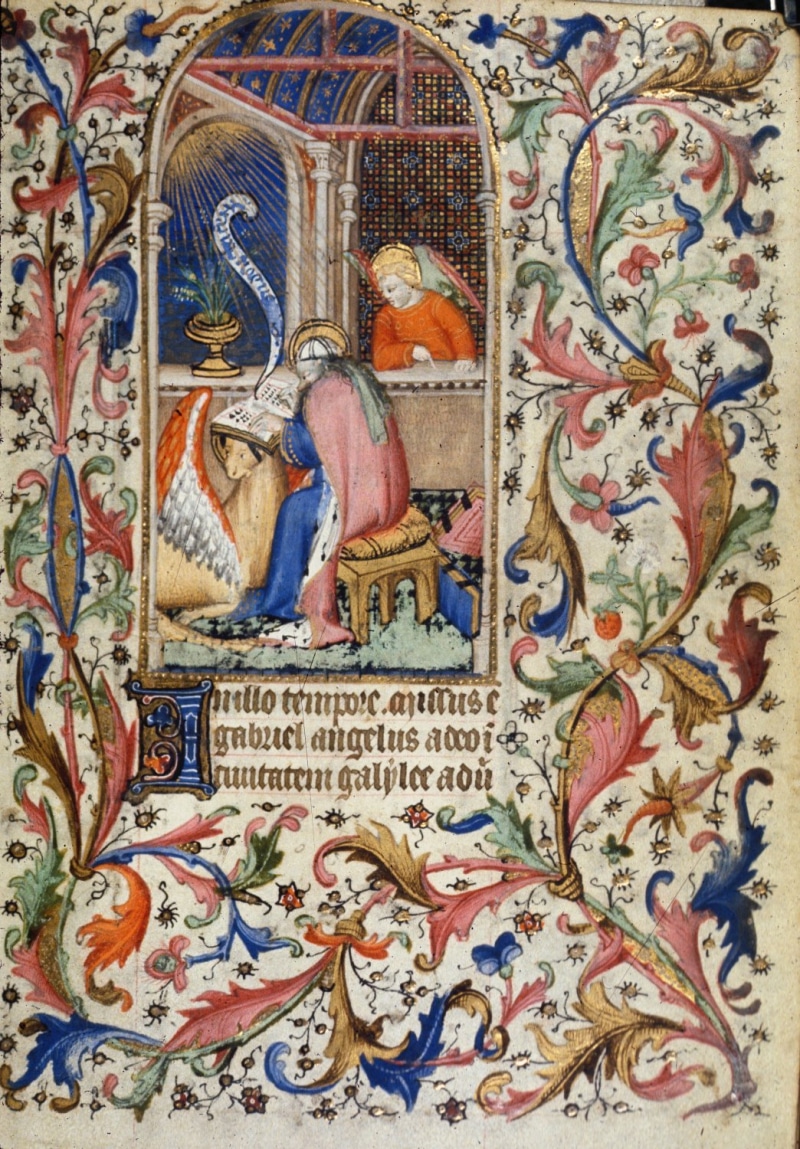 Inillo tempore. missus e
gabriel angelus adeo ī
ciuitatem galÿlee adū